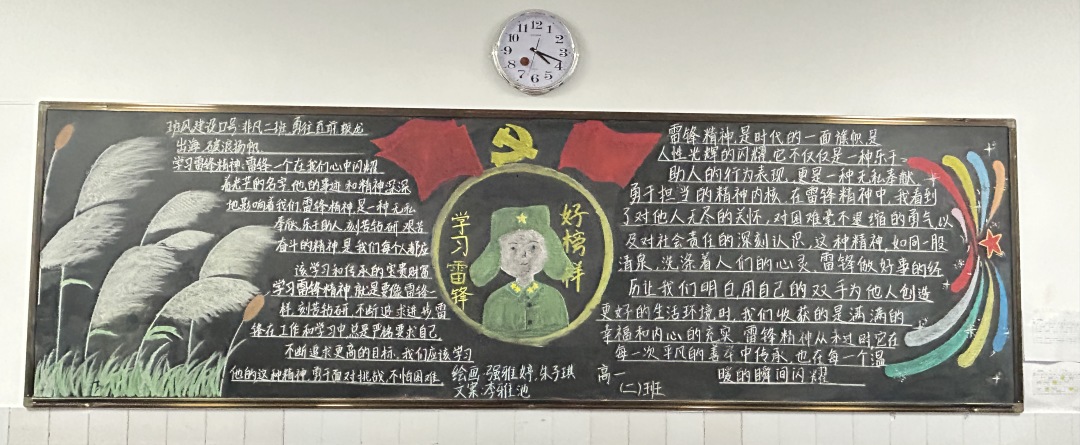 12
1
2
3
4
5
6
7
8
9
10
11
班风建设口号:非凡二班 勇往直前 蛟龙
出海 破浪扬帆
学习雷锋精神:雷锋一个在我们心中闪耀
着光芒的名字,他的事迹和精神深深
地影响着我们雷锋精神是一种无私
奉献,乐于助人,刻苦钻研,艰苦
奋斗的精神是我们每个人都应
该学习和传承的宝贵财富
学习雷锋精神就是要像雷锋一
样,刻苦钻研,不断追求进步雷
锋在工作和学习中,总是严格要求自己,
不断追求更高的目标,我们应该学习
他的这种精神,勇于面对挑战,不怕困难
学习雷锋
好榜样
绘画:强雅婷,朱子琪
文案:李雅池
雷锋精神,是时代的一面旗帜,是
人性光辉的闪耀,它不仅仅是一种乐于
助人的行为表现,更是一种无私奉献,
勇于担当的精神内核,在雷锋精神中,我看到
了对他人无尽的关怀,对困难毫不畏缩的勇气以
及对社会责任的深刻认识,这种精神,如同一股
清泉,洗涤着人们的心灵,雷锋做好事的经
历让我们明白,用自己的双手为他人创造
更好的生活环境时,我们收获的是满满的
幸福和内心的充实,雷锋精神从未过时它在
每一次平凡的善举中传承,也在每一个温
暖的瞬间闪耀
高一
(二)班